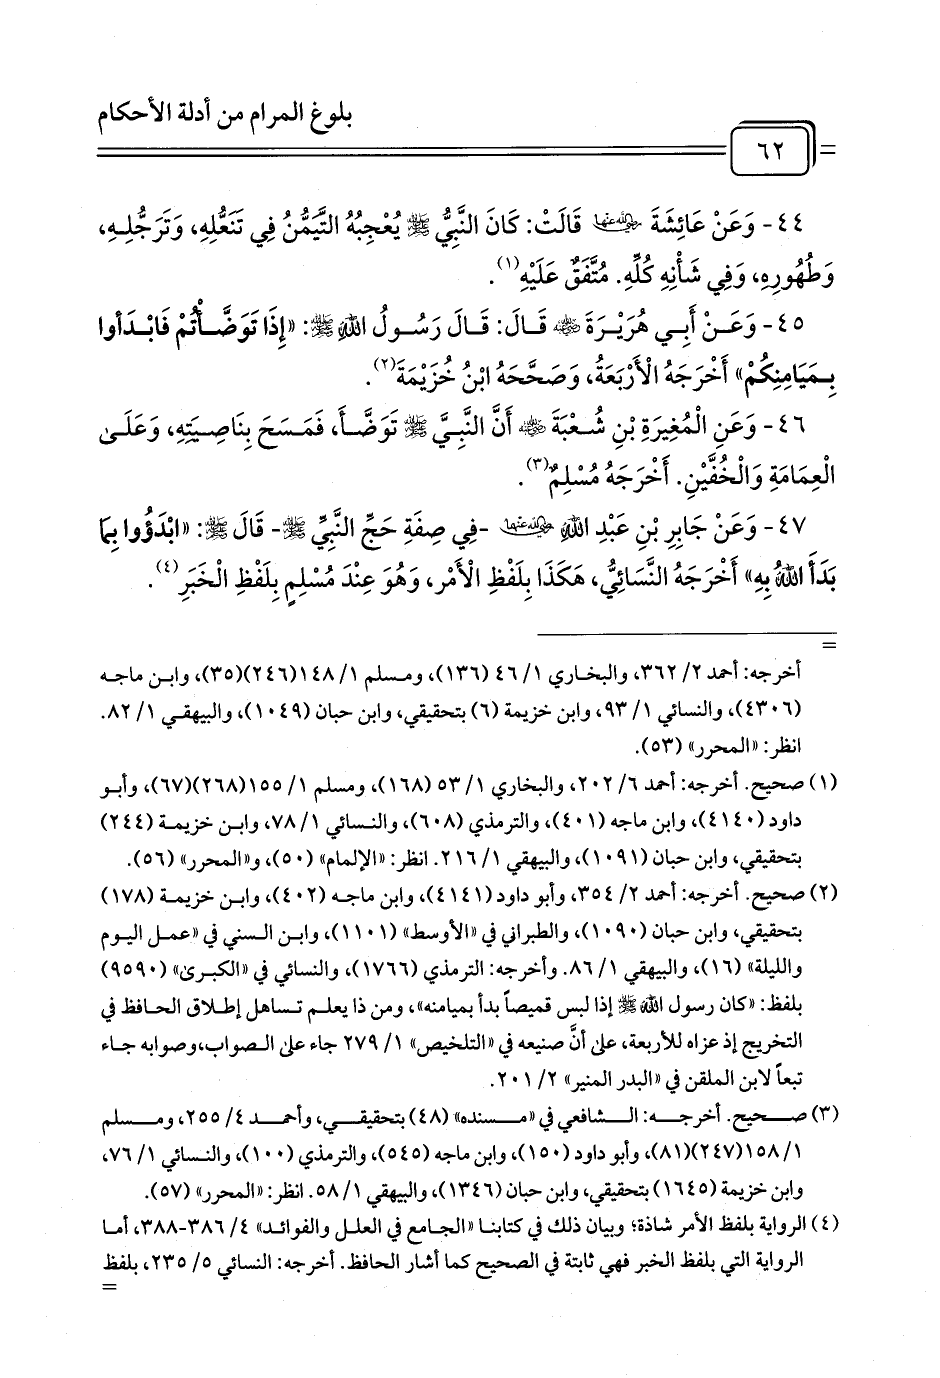 بلوغ المرام من أدلة الأحكام
= ٦٢
٤٤- وَعَنْ عَائِشَةَ رضي الله عنها قَالَتْ: كَانَ النَّبِيُّ ﷺ يُعْجِبُهُ التَّيَمُّنُ فِي تَنَعُّلِهِ، وَتَرَجُّلِهِ،
وَطُهُورِهِ، وَفِي شَأْنِهِ كُلِّهِ. مُتَّفَقٌ عَلَيْهِ(١).
٤٥- وَعَنْ أَبِي هُرَيْرَةَ رضي الله عنه قَالَ: قَالَ رَسُولُ اللهِ ﷺ: «إِذَا تَوَضَّأْتُمْ فَابْدَأُوا
بِمَيَامِنِكُمْ» أَخْرَجَهُ الْأَرْبَعَةُ، وَصَحَّحَهُ ابْنُ خُزَيْمَةَ(٢).
٤٦- وَعَنِ الْمُغِيرَةِ بْنِ شُعْبَةَ رضي الله عنه أَنَّ النَّبِيَّ ﷺ تَوَضَّأَ، فَمَسَحَ بِنَاصِيَتِهِ، وَعَلَى
الْعِمَامَةِ وَالْخُفَّيْنِ. أَخْرَجَهُ مُسْلِمٌ(٣).
٤٧- وَعَنْ جَابِرِ بْنِ عَبْدِ اللهِ رضي الله عنهما -فِي صِفَةِ حَجِّ النَّبِيِّ ﷺ- قَالَ ﷺ: «ابْدَؤُوا بِمَا
بَدَأَ اللهُ بِهِ» أَخْرَجَهُ النَّسَائِيُّ، هَكَذَا بِلَفْظِ الْأَمْرِ، وَهُوَ عِنْدَ مُسْلِمٍ بِلَفْظِ الْخَبَرِ(٤).
=
أخرجه: أحمد ٢/ ٣٦٢، والبخاري ١/ ٤٦ (١٣٦)، ومسلم ١/ ١٤٨ (٢٤٦)(٣٥)، وابن ماجه
(٤٣٠٦)، والنسائي ١/ ٩٣، وابن خزيمة (٦) بتحقيقي، وابن حبان (١٠٤٩)، والبيهقي ١/ ٨٢.
انظر: «المحرر» (٥٣).
(١) صحيح. أخرجه: أحمد ٦/ ٢٠٢، والبخاري ١/ ٥٣ (١٦٨)، ومسلم ١/ ١٥٥ (٢٦٨)(٦٧)، وأبو
داود (٤١٤٠)، وابن ماجه (٤٠١)، والترمذي (٦٠٨)، والنسائي ١/ ٧٨، وابن خزيمة (٢٤٤)
بتحقيقي، وابن حبان (١٠٩١)، والبيهقي ١/ ٢١٦. انظر: «الإلمام» (٥٠)، و«المحرر» (٥٦).
(٢) صحيح. أخرجه: أحمد ٢/ ٣٥٤، وأبو داود (٤١٤١)، وابن ماجه (٤٠٢)، وابن خزيمة (١٧٨)
بتحقيقي، وابن حبان (١٠٩٠)، والطبراني في «الأوسط» (١١٠١)، وابن السني في «عمل اليوم
والليلة» (١٦)، والبيهقي ١/ ٨٦. وأخرجه: الترمذي (١٧٦٦)، والنسائي في «الكبرى» (٩٥٩٠)
بلفظ: «كان رسول الله ﷺ إذا لبس قميصاً بدأ بميامنه»، ومن ذا يعلم تساهل إطلاق الحافظ في
التخريج إذ عزاه للأربعة، على أنَّ صنيعه في «التلخيص» ١/ ٢٧٩ جاء على الصواب، وصوابه جاء
تبعاً لابن الملقن في «البدر المنير» ٢/ ٢٠١.
(٣) صحيح. أخرجه: الشافعي في «مسنده» (٤٨) بتحقيقي، وأحمد ٤/ ٢٥٥، ومسلم
١/ ١٥٨ (٢٤٧)(٨١)، وأبو داود (١٥٠)، وابن ماجه (٥٤٥)، والترمذي (١٠٠)، والنسائي ١/ ٧٦،
وابن خزيمة (١٦٤٥) بتحقيقي، وابن حبان (١٣٤٦)، والبيهقي ١/ ٥٨. انظر: «المحرر» (٥٧).
(٤) الرواية بلفظ الأمر شاذة؛ وبيان ذلك في كتابنا «الجامع في العلل والفوائد» ٤/ ٣٨٦-٣٨٨، أما
الرواية التي بلفظ الخبر فهي ثابتة في الصحيح كما أشار الحافظ. أخرجه: النسائي ٥/ ٢٣٥، بلفظ
=